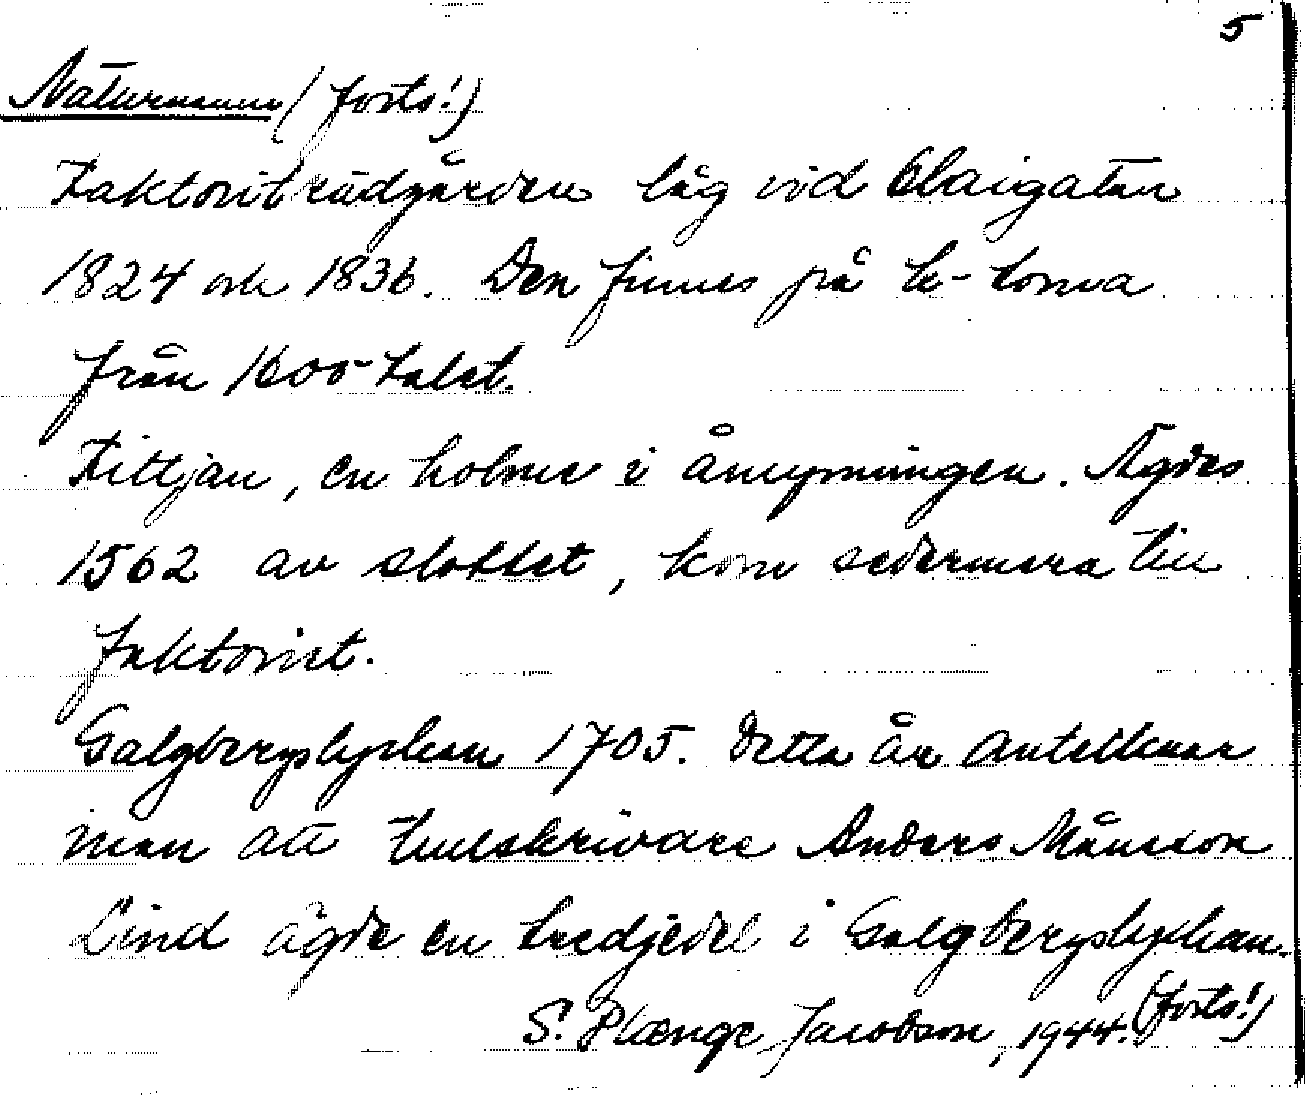 5
Naturnamn (forts!)
Faktoriträdgården låg vid Olaigatan
1824 och 1836. Den finnes på k-torna
från 1600-talet.
Kittjan, en holme i åmynningen. Ägdes
1562 av slottet, kom sedermera till
faktoriet.
Galgbergslyckan 1705. Detta år antecknar
man att tullskrivare Anders Månsson
Lind ägde en tredjedel i Galgbergslyckan.
(forts!)
S. Plænge Jacobson, 1944.